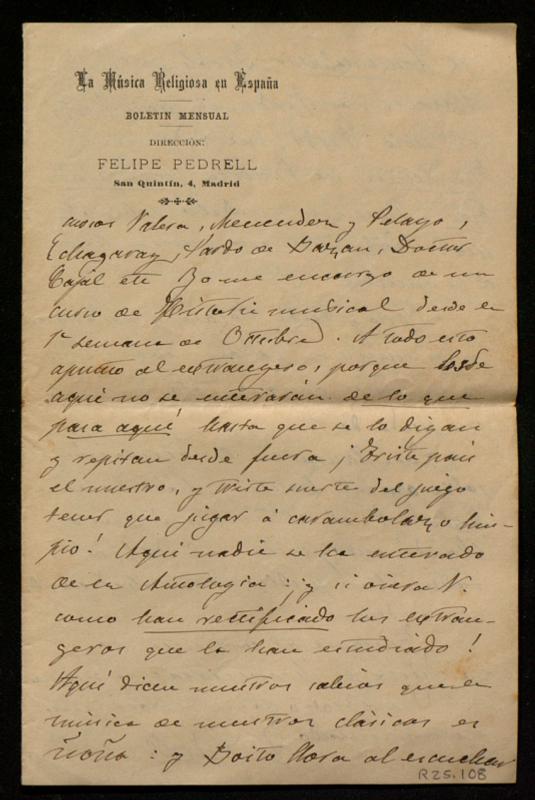 La Música Religiosa en España
BOLETIN MENSUAL
DIRECCIÓN:
FELIPE PEDRELL
San Quintín, 4, Madrid
Valera, Menendez y Pelayo,
Echagaray, Pardo de Bazan, Doctor
Cajál etc Yo me encargo de un
curso de Historia musical desde la
1ª semana de Octubre. A todo esto
apunto al extrangero, porque los de
aquí no se enterarán de lo que
pasa aquí hasta que se lo digan
y repitan desde fuera ¡Triste pais
el nuestro, y triste suerte del juego
tener que jugar á carambolazo lim-
pio! Aquí nadie se ha enterado
de la Antología: ¡y si viera V.
como han rectificado los extran-
geros que la han estudiado!
Aquí dicen nuestros sabios que la
música de nuestros clásicos es
ñoña: y Boito llora al escuchar
R25.108